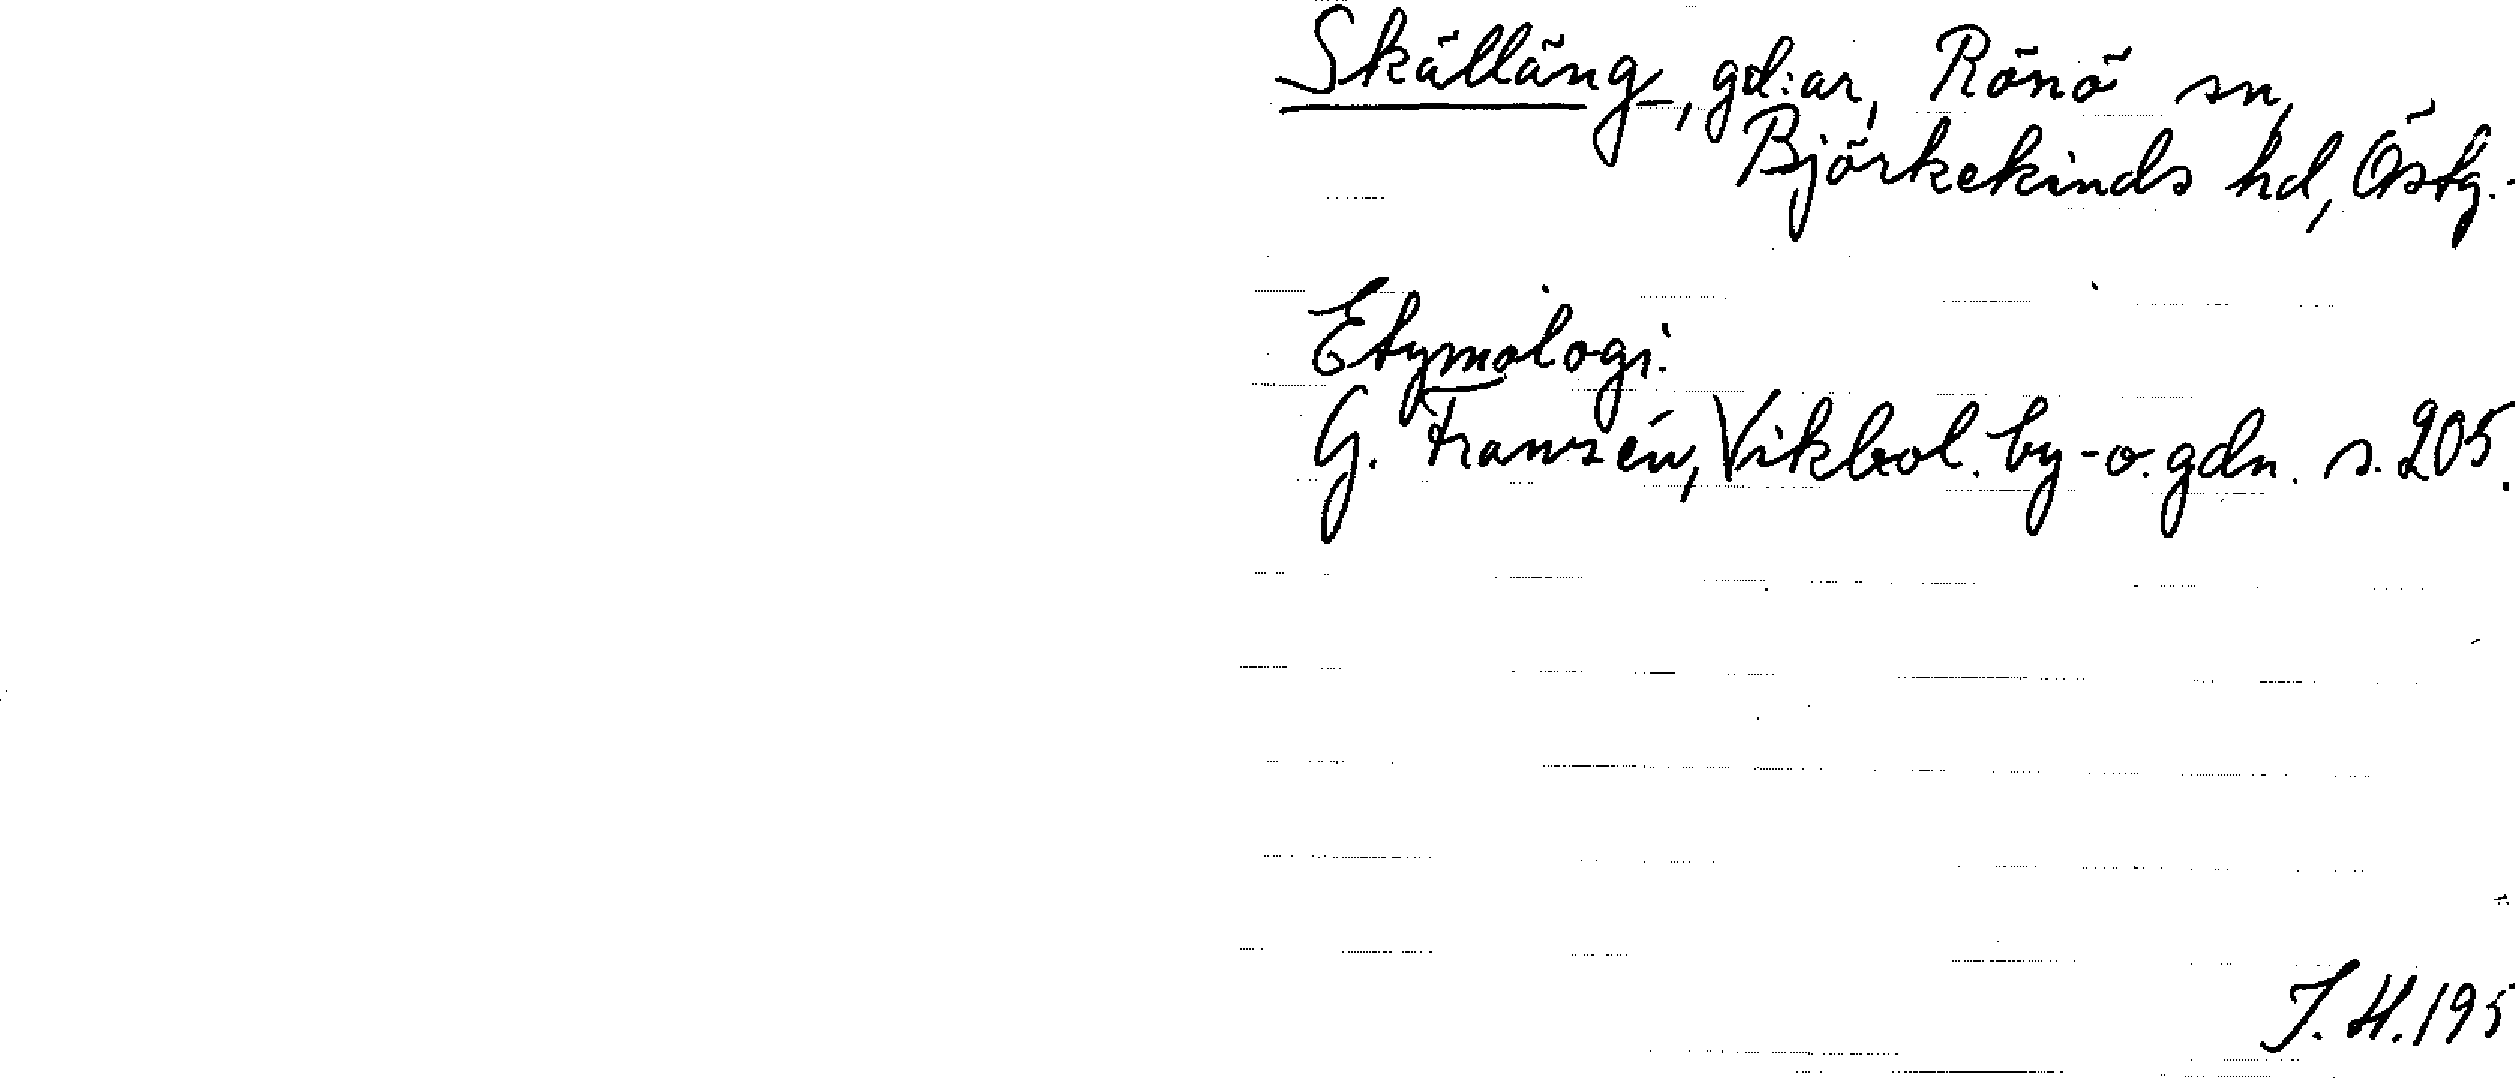 Skälläng, gd:ar, Rönö sn,
Björkekinds hd, Östg.
Etymologi.
G. Franzén, Vikbol. by- o. gdn. s. 205.
J. H. 195